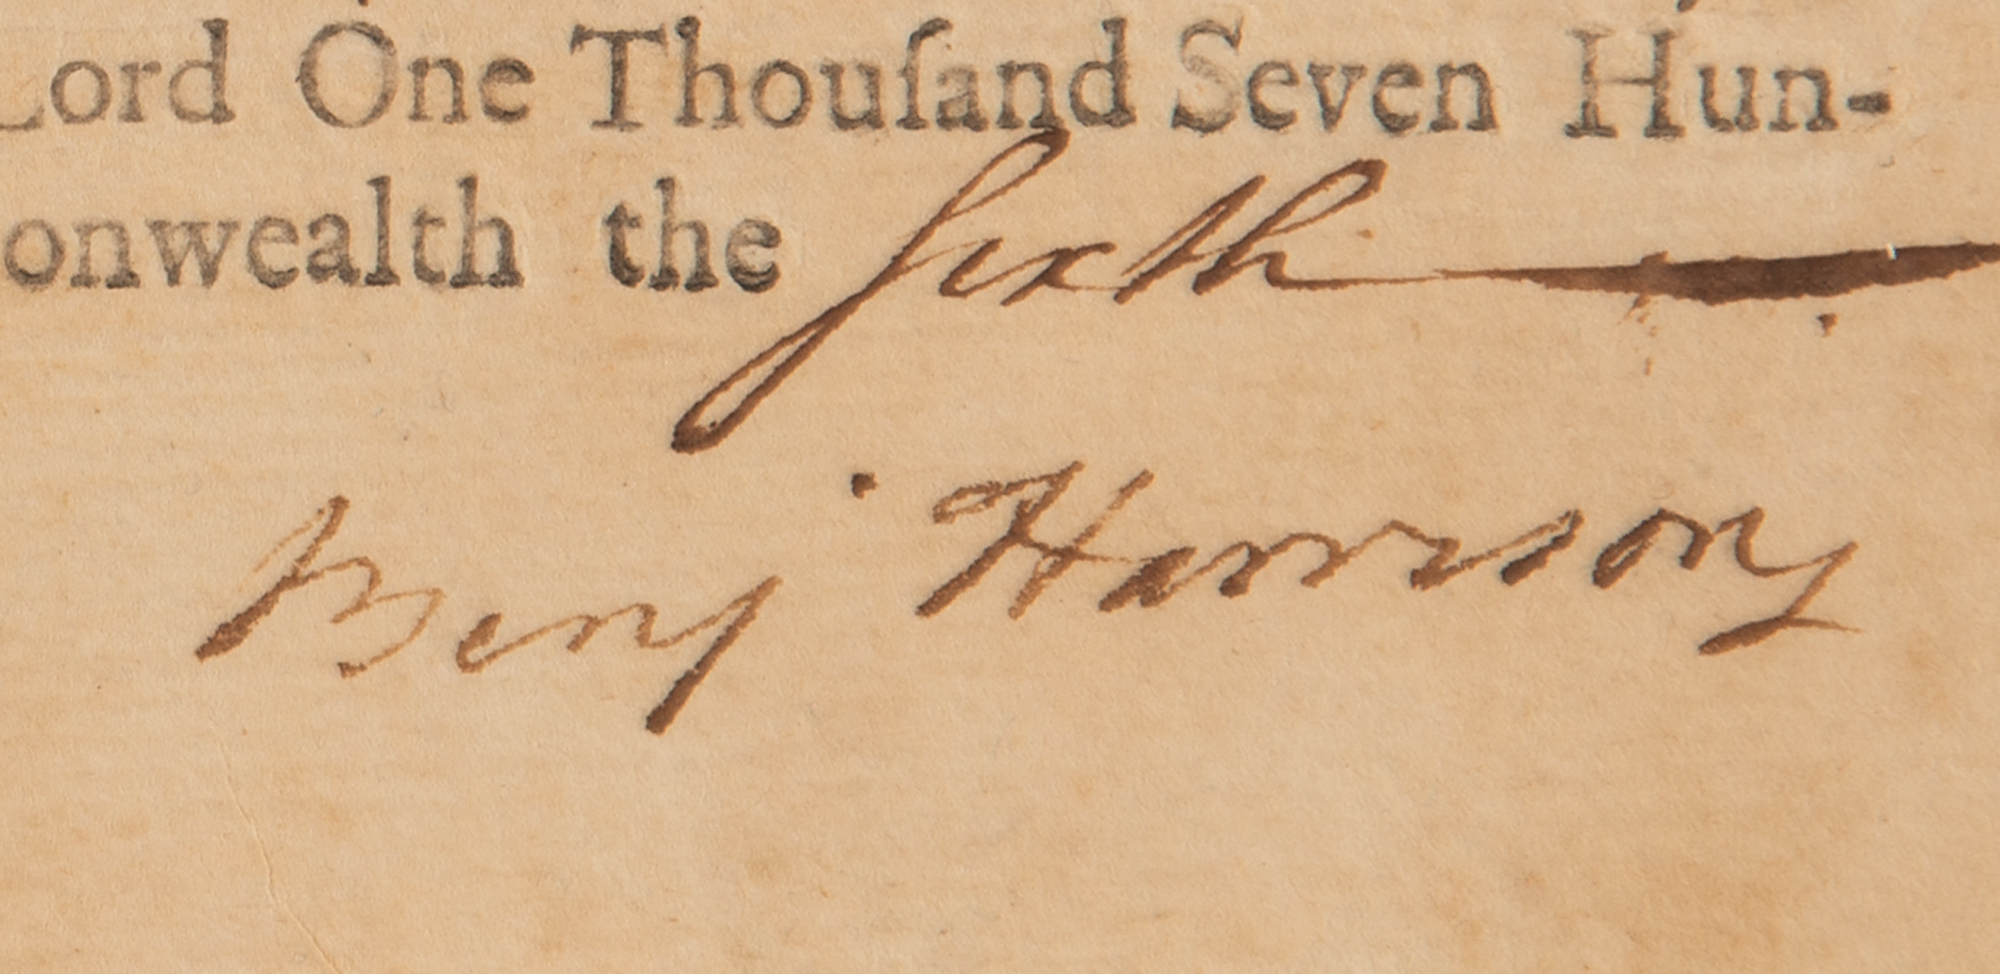 Lord One Thouſand Seven Hun-
onwealth the ſixth
Benj Harrison